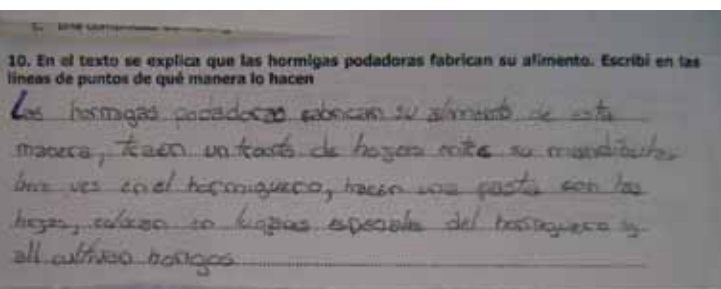 10. En el texto se explica que las hormigas podadoras fabrican su alimento. Escribí en las
líneas de puntos de qué manera lo hacen
Las hormigas podadoras fabrican su alimento de esta
manera, traen un de hojas su mandibulas
una ves en el hormiguero, hacen una pasta con las
hojas, colocan en lugares especiales del hormiguero y
all cultivan hongos